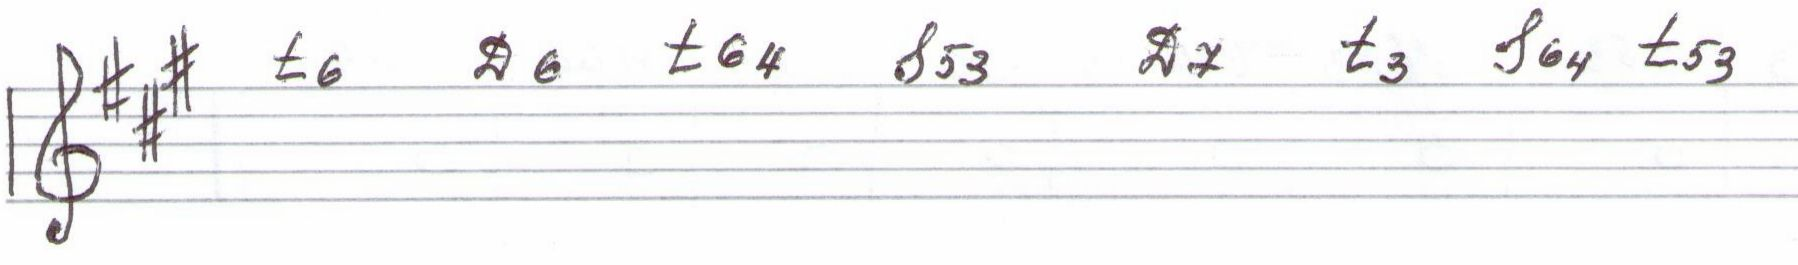 t6 D6 t64 S53 D7 t3 S64 t53